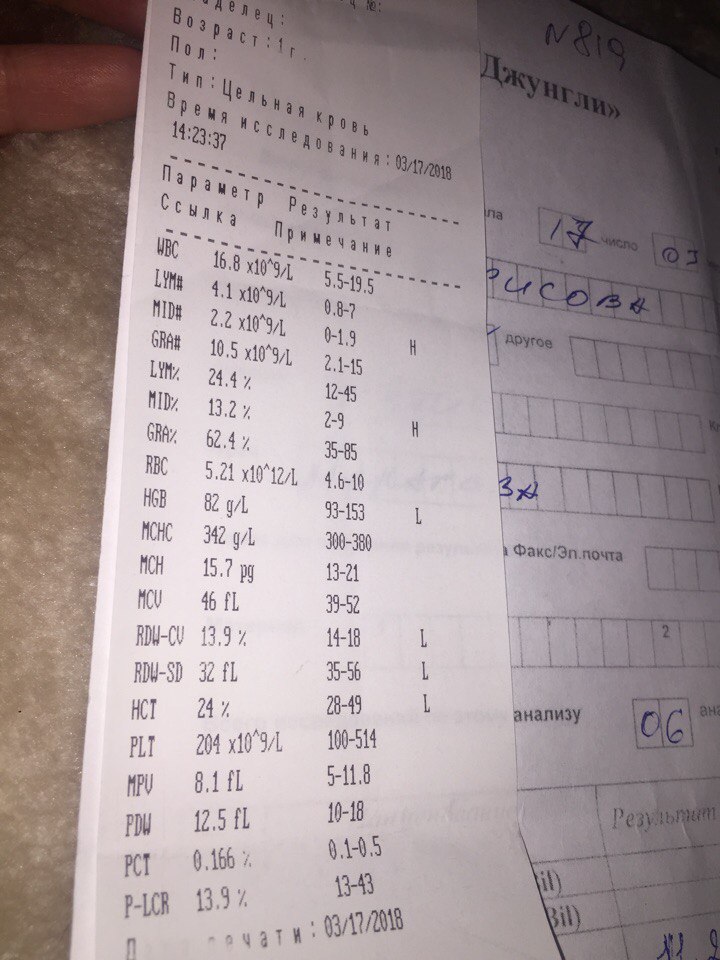 Возраст:1г.
Пол:
Тип:Цельная кровь
Время исследования:03/17/2018
14:23:37
Параметр Результат
Ссылка Примечание
WBC 16.8 x10^9/L 5.5-19.5
LYM# 4.1 x10^9/L 0.8-7
MID# 2.2 x10^9/L 0-1.9 H
GRA# 10.5 x10^9/L 2.1-15
LYM% 24.4 % 12-45
MID% 13.2 % 2-9 H
GRA% 62.4 % 35-85
RBC 5.21 x10^12/L 4.6-10
HGB 82 g/L 93-153 L
MCHC 342 g/L 300-380
MCH 15.7 pg 13-21
MCV 46 fL 39-52
RDW-CV 13.9 % 14-18 L
RDW-SD 32 fL 35-56 L
HCT 24 % 28-49 L
PLT 204 x10^9/L 100-514
MPV 8.1 fL 5-11.8
PDW 12.5 fL 10-18
PCT 0.166 % 0.1-0.5
P-LCR 13.9 % 13-43
03/17/2018
N 819
Джунгли»
17 число 03
другое
Факс/Эл.почта
2
анализу 06
Результат